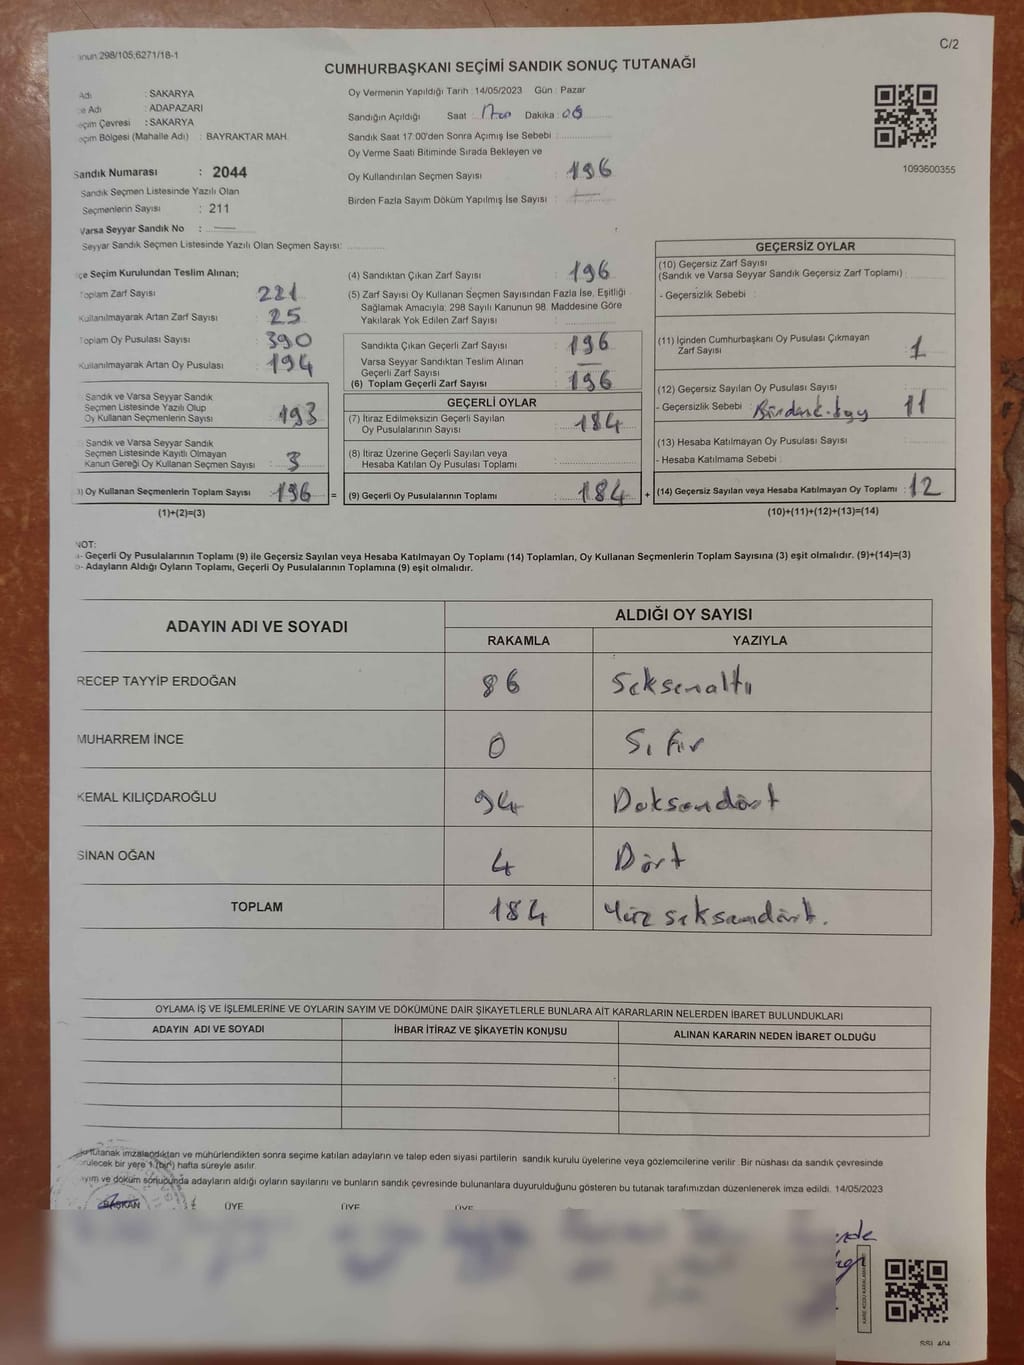 anun.298/105,6271/18-1
C/2
CUMHURBAŞKANI SEÇİMİ SANDIK SONUÇ TUTANAĞI
Adı : SAKARYA
e Adı : ADAPAZARI
eçim Çevresi : SAKARYA
eçim Bölgesi (Mahalle Adı) : BAYRAKTAR MAH.
Oy Vermenin Yapıldığı Tarih : 14/05/2023 Gün : Pazar
Sandığın Açıldığı Saat : 17:00 Dakika : 00
Sandık Saat 17:00'den Sonra Açımış İse Sebebi :
Oy Verme Saati Bitiminde Sırada Bekleyen ve
Oy Kullandırılan Seçmen Sayısı : 196
Birden Fazla Sayım Döküm Yapılmış İse Sayısı : —
1093600355
Sandık Numarası : 2044
Sandık Seçmen Listesinde Yazılı Olan
Seçmenlerin Sayısı : 211
Varsa Seyyar Sandık No : —
Seyyar Sandık Seçmen Listesinde Yazılı Olan Seçmen Sayısı:
çe Seçim Kurulundan Teslim Alınan;
Toplam Zarf Sayısı 221
Kullanılmayarak Artan Zarf Sayısı 25
Toplam Oy Pusulası Sayısı 390
Kullanılmayarak Artan Oy Pusulası 194
Sandık ve Varsa Seyyar Sandık
Seçmen Listesinde Yazılı Olup
Oy Kullanan Seçmenlerin Sayısı 193
Sandık ve Varsa Seyyar Sandık
Seçmen Listesinde Kayıtlı Olmayan
Kanun Gereği Oy Kullanan Seçmen Sayısı : 3
) Oy Kullanan Seçmenlerin Toplam Sayısı : 196 =
(1)+(2)=(3)
(4) Sandıktan Çıkan Zarf Sayısı : 196
(5) Zarf Sayısı Oy Kullanan Seçmen Sayısından Fazla İse, Eşitliği
Sağlamak Amacıyla; 298 Sayılı Kanunun 98. Maddesine Göre
Yakılarak Yok Edilen Zarf Sayısı :
Sandıkta Çıkan Geçerli Zarf Sayısı : 196
Varsa Seyyar Sandıktan Teslim Alınan
Geçerli Zarf Sayısı : —
(6) Toplam Geçerli Zarf Sayısı : 196
GEÇERLİ OYLAR
(7) İtiraz Edilmeksizin Geçerli Sayılan
Oy Pusulalarının Sayısı : 184
(8) İtiraz Üzerine Geçerli Sayılan veya
Hesaba Katılan Oy Pusulası Toplamı :
(9) Geçerli Oy Pusulalarının Toplamı : 184 +
GEÇERSİZ OYLAR
(10) Geçersiz Zarf Sayısı
(Sandık ve Varsa Seyyar Sandık Geçersiz Zarf Toplamı) :
- Geçersizlik Sebebi :
(11) İçinden Cumhurbaşkanı Oy Pusulası Çıkmayan
Zarf Sayısı : 1
(12) Geçersiz Sayılan Oy Pusulası Sayısı :
- Geçersizlik Sebebi : 11
(13) Hesaba Katılmayan Oy Pusulası Sayısı :
- Hesaba Katılmama Sebebi :
(14) Geçersiz Sayılan veya Hesaba Katılmayan Oy Toplamı : 12
(10)+(11)+(12)+(13)=(14)
NOT:
- Geçerli Oy Pusulalarının Toplamı (9) ile Geçersiz Sayılan veya Hesaba Katılmayan Oy Toplamı (14) Toplamları, Oy Kullanan Seçmenlerin Toplam Sayısına (3) eşit olmalıdır. (9)+(14)=(3)
- Adayların Aldığı Oyların Toplamı, Geçerli Oy Pusulalarının Toplamına (9) eşit olmalıdır.
ADAYIN ADI VE SOYADI
ALDIĞI OY SAYISI
RAKAMLA YAZIYLA
RECEP TAYYİP ERDOĞAN 86 Seksenaltı
MUHARREM İNCE 0 Sıfır
KEMAL KILIÇDAROĞLU 94 Doksandört
SİNAN OĞAN 4 Dört
TOPLAM 184 Yüz seksendört.
OYLAMA İŞ VE İŞLEMLERİNE VE OYLARIN SAYIM VE DÖKÜMÜNE DAİR ŞİKAYETLERLE BUNLARA AİT KARARLARIN NELERDEN İBARET BULUNDUKLARI
ADAYIN ADI VE SOYADI İHBAR İTİRAZ VE ŞİKAYETİN KONUSU ALINAN KARARIN NEDEN İBARET OLDUĞU
tutanak imzalandıktan ve mühürlendikten sonra seçime katılan adayların ve talep eden siyasi partilerin sandık kurulu üyelerine veya gözlemcilerine verilir. Bir nüshası da sandık çevresinde
rülecek bir yere 1 (bir) hafta süreyle asılır.
ayım ve döküm sonucunda adayların aldığı oyların sayılarını ve bunların sandık çevresinde bulunanlara duyurulduğunu gösteren bu tutanak tarafımızdan düzenlenerek imza edildi. 14/05/2023
BAŞKAN ÜYE ÜYE ÜYE